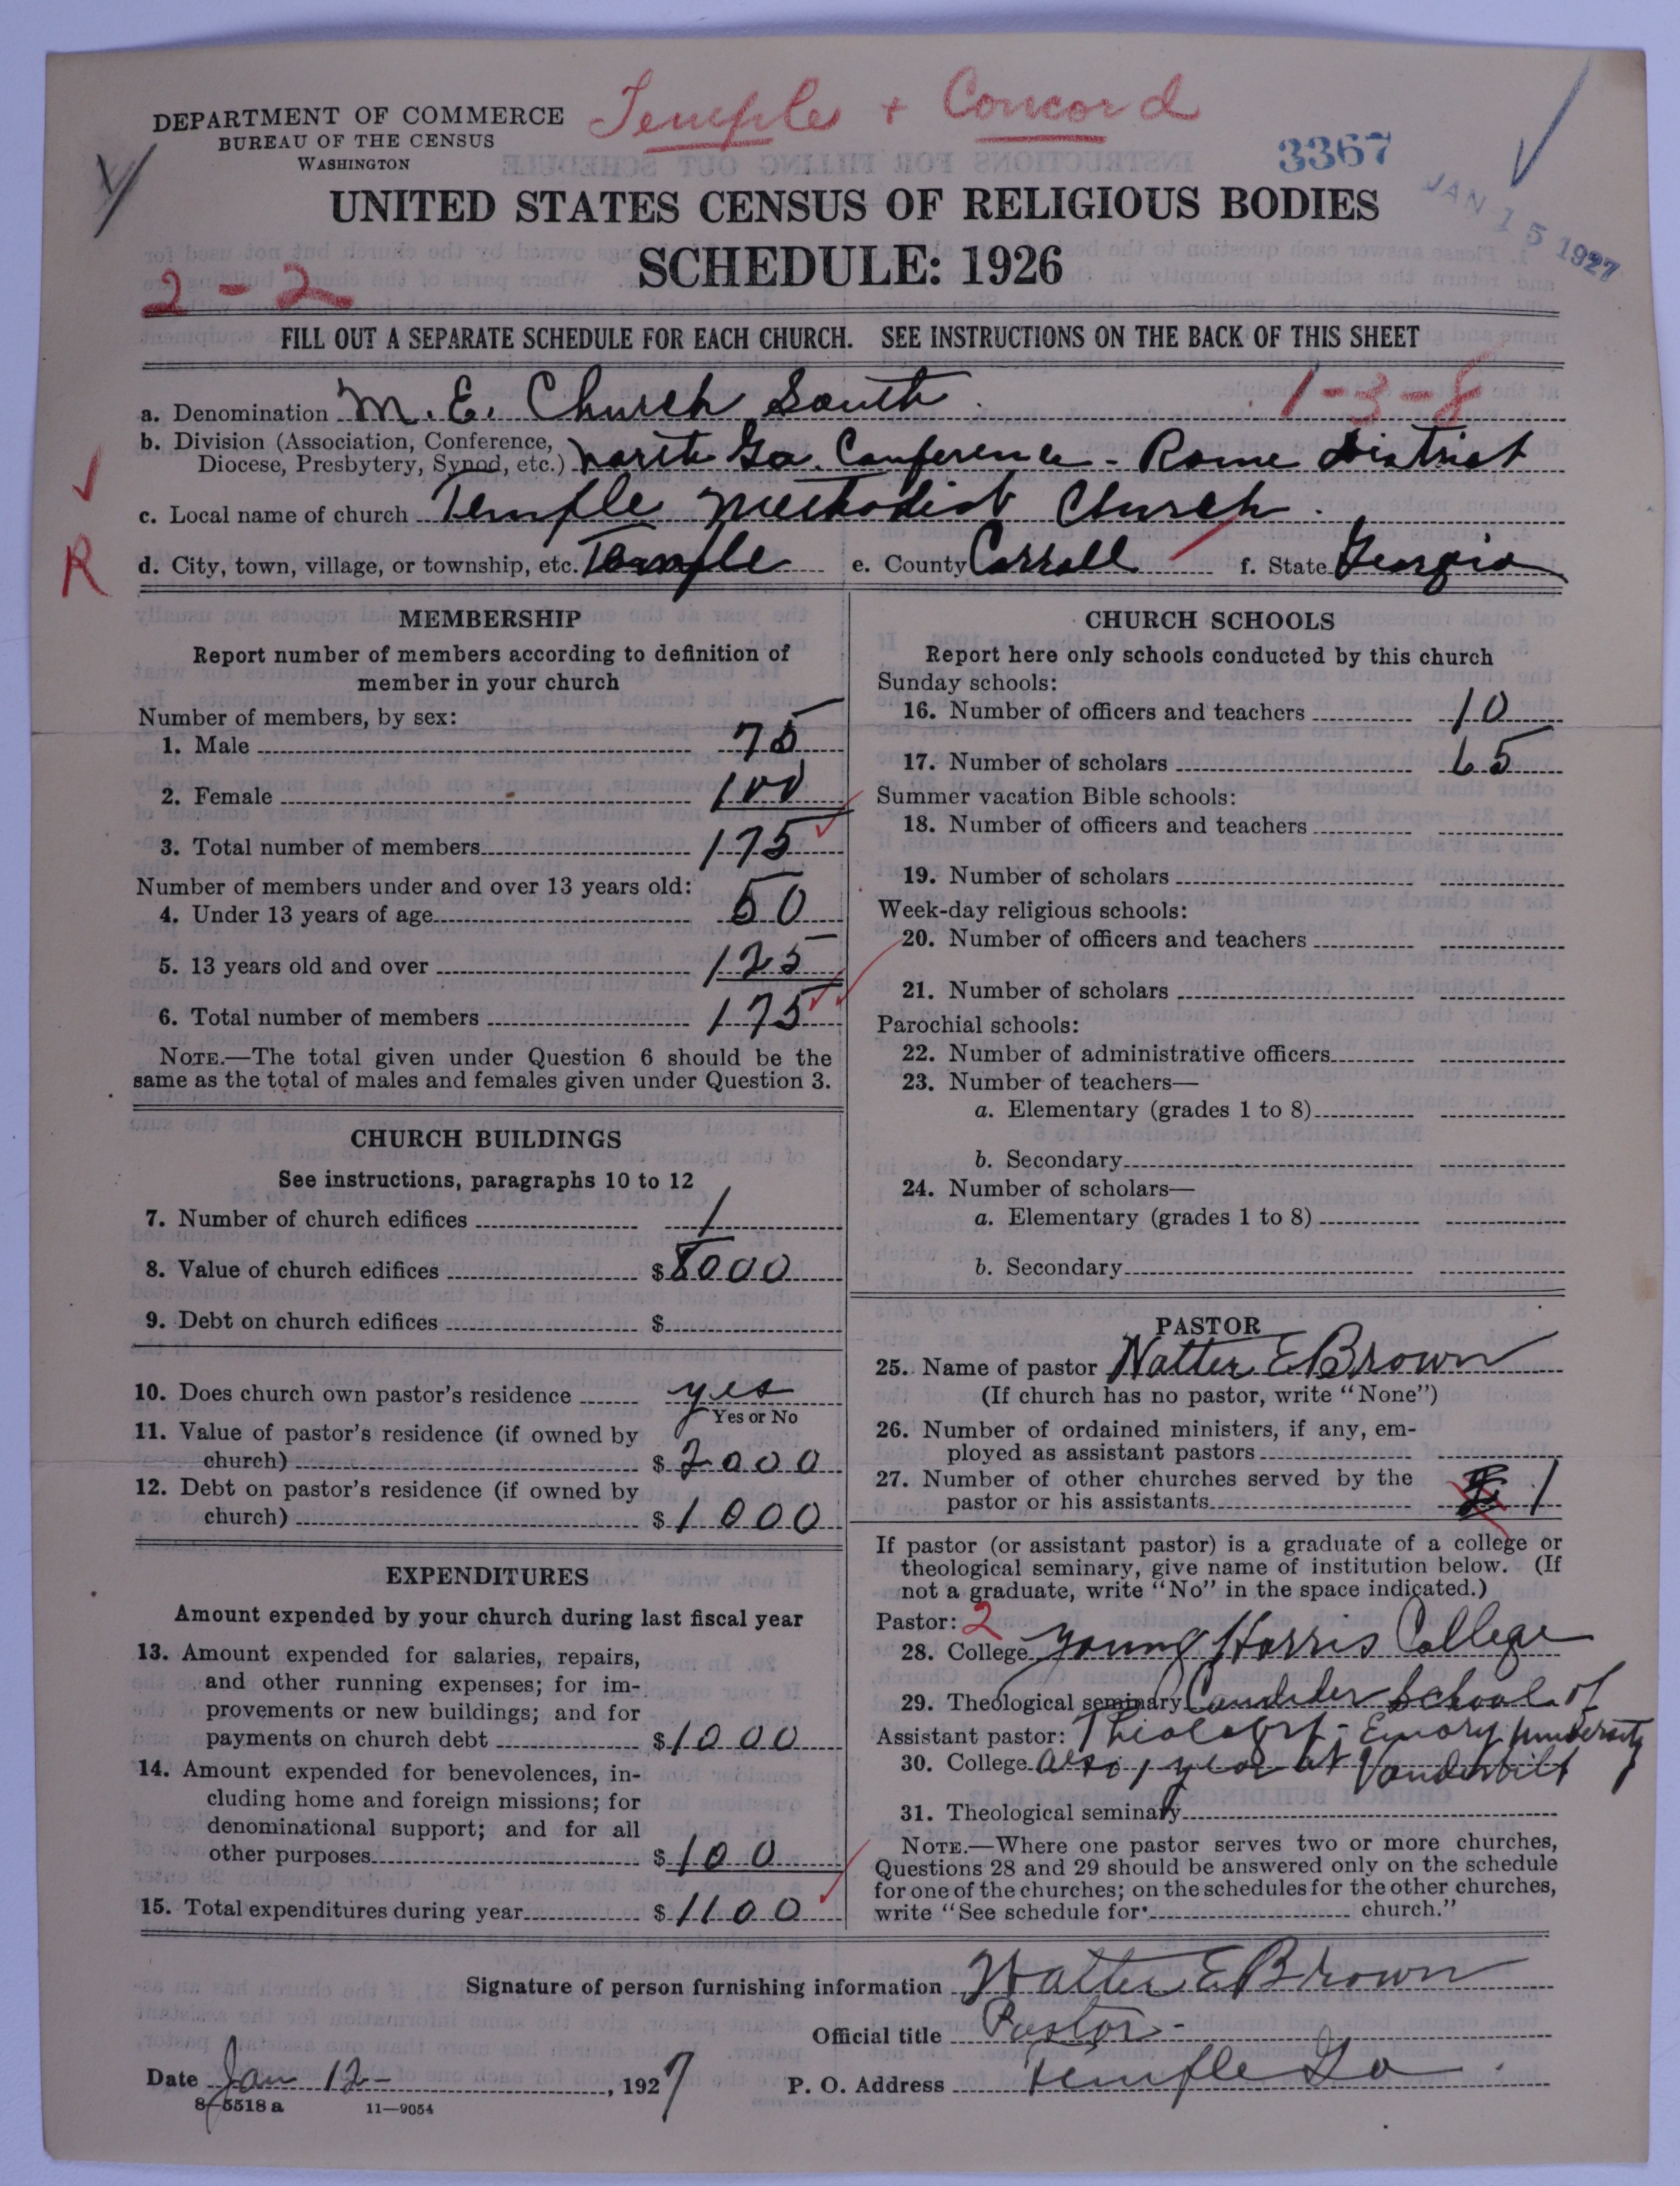 Temple + Concord
DEPARTMENT OF COMMERCE
BUREAU OF THE CENSUS
WASHINGTON
3367
JAN 15 1927
UNITED STATES CENSUS OF RELIGIOUS BODIES
SCHEDULE: 1926
2-2
FILL OUT A SEPARATE SCHEDULE FOR EACH CHURCH. SEE INSTRUCTIONS ON THE BACK OF THIS SHEET
1-3-8
a. Denomination M. E. Church South
b. Division (Association, Conference,
Diocese, Presbytery, Synod, etc.) North Ga. Conference - Rome District
c. Local name of church Temple Methodist Church.
R
d. City, town, village, or township, etc. Temple e. County Carroll f. State Georgia
MEMBERSHIP
Report number of members according to definition of
member in your church
Number of members, by sex:
1. Male 75
2. Female 100
3. Total number of members 175
Number of members under and over 13 years old:
4. Under 13 years of age 50
5. 13 years old and over 125
6. Total number of members 175
NOTE.—The total given under Question 6 should be the
same as the total of males and females given under Question 3.
CHURCH BUILDINGS
See instructions, paragraphs 10 to 12
7. Number of church edifices 1
8. Value of church edifices $8000
9. Debt on church edifices $
10. Does church own pastor's residence yes
Yes or No
11. Value of pastor's residence (if owned by
church) $2000
12. Debt on pastor's residence (if owned by
church) $1000
EXPENDITURES
Amount expended by your church during last fiscal year
13. Amount expended for salaries, repairs,
and other running expenses; for im-
provements or new buildings; and for
payments on church debt $1000
14. Amount expended for benevolences, in-
cluding home and foreign missions; for
denominational support; and for all
other purposes $100
15. Total expenditures during year $1100
CHURCH SCHOOLS
Report here only schools conducted by this church
Sunday schools:
16. Number of officers and teachers 10
17. Number of scholars 65
Summer vacation Bible schools:
18. Number of officers and teachers
19. Number of scholars
Week-day religious schools:
20. Number of officers and teachers
21. Number of scholars
Parochial schools:
22. Number of administrative officers
23. Number of teachers—
a. Elementary (grades 1 to 8)
b. Secondary
24. Number of scholars—
a. Elementary (grades 1 to 8)
b. Secondary
PASTOR
25. Name of pastor Walter E Brown
(If church has no pastor, write "None")
26. Number of ordained ministers, if any, em-
ployed as assistant pastors
27. Number of other churches served by the
pastor or his assistants 1
If pastor (or assistant pastor) is a graduate of a college or
theological seminary, give name of institution below. (If
not a graduate, write "No" in the space indicated.)
Pastor: 2
28. College Young Harris College
29. Theological seminary Candler School of
Assistant pastor: Theology - Emory University
30. College also 1 year at Vanderbilt
31. Theological seminary
NOTE.—Where one pastor serves two or more churches,
Questions 28 and 29 should be answered only on the schedule
for one of the churches; on the schedules for the other churches,
write "See schedule for church."
Signature of person furnishing information Walter E Brown
Official title Pastor -
Date Jan 12 - , 1927 P. O. Address Temple Ga.
8-5518 a 11-9054